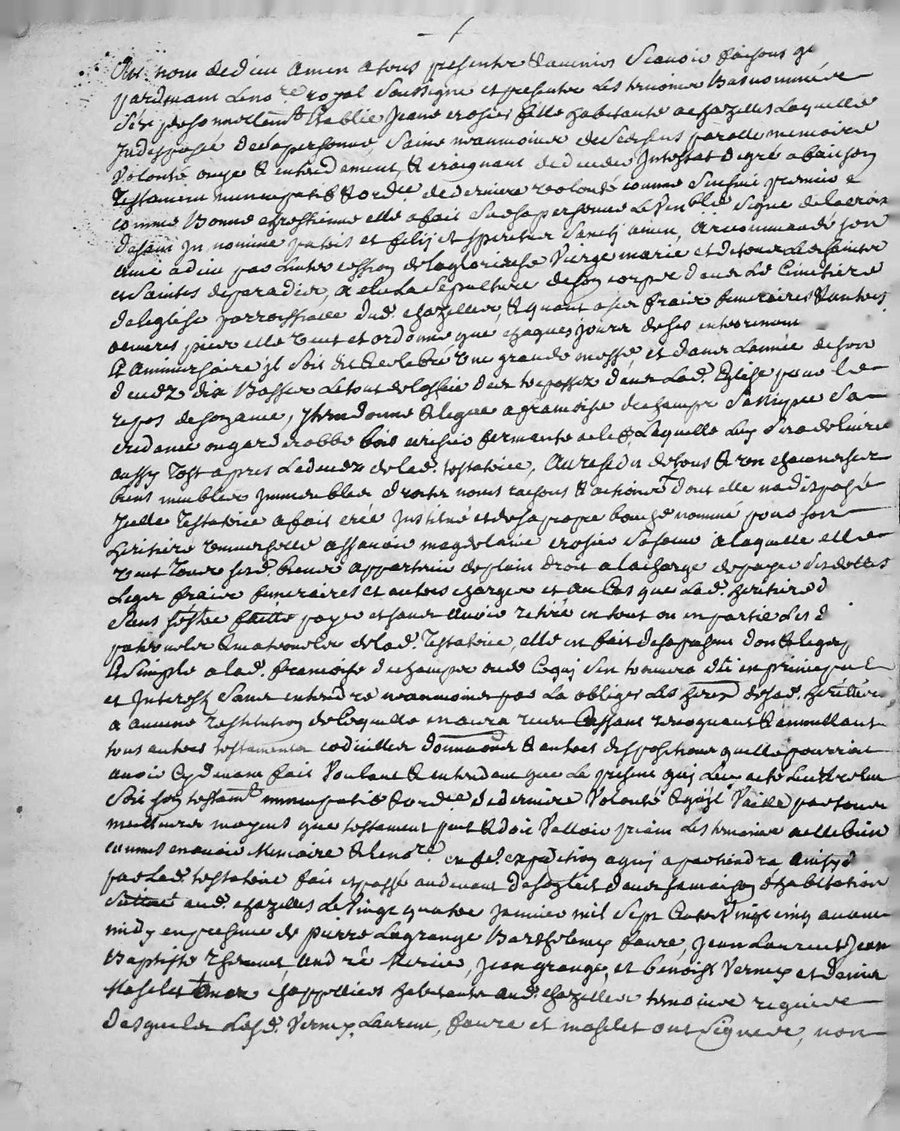 Au nom de dieu amen a tous presents & avenirs scavoir faisons q
pardevant le nore royal soussigné et presents les temoins bas nommés
s'est personnellemt Establie Jeane crosier fille habitante a chazelles Laquelle
Indisposée de sa personne, saine neanmoins de ses sens parolle memoire
Volonté ouye & entendement, & craignant de deceder Intestat de gré a fait son
Testament nuncupatif & ordre de derniere volonté comme sensuit premier
comme Bonne chrestienne elle a fait sur sa personne le Venble signe de la croix
disant In nomine patris et filij et spiritus sancti amen, a recommandé son
ame a dieu par L'intercession de la glorieuse Vierge marie et de tous Les saints
et saintes de paradis, a elu La sepulture de son corps dans Le Cimetiere
de leglise parroissialle dud. chazelles, & quant a ses fraix funeraires & autres
œuvres pies elle veut et ordonne que chaques jours de ses enterrement
et Annuersaire il soit dit & celebré une grande messe et dans L'année de son
deceds dix Basses Le tout de L'office des trepassez dans Lad. Eglise pour le
repos de son ame, Item donne & legue a francoise duchamps sa niepce sa
credance ou garderobbe bois cerisier fermante a clef Laquelle luy sera delivrée
aussy tost apres Le deceds de lad. testatrice, Au residu de tous & un chacuns ses
biens meubles Immeubles droits noms raisons & actions dont elle na disposé
Icelle Testatrice a fait créé Institué et de sa propre bouche nommé pour son
heritiere universelle assavoir magdelaine crosier sa sœur a laquelle elle
veut Tous sesd. biens appartenir de plain droit a la charge de payer ses dettes
Legats fraix funeraires et autres charges et au Cas que Lad. heritiere d
sans payer et sans avoir retiré en tout ou en partie Les d
paternels & maternels de lad. Testatrice, elle en fait des a present don & legat
et simple a lad. francoise duchamps en principal
et Interests sans entendre neanmoins par La obliger Les hers de sad. heritiere
a aucune restitution de laquelle en aura receu Cassant revoquant & annullant
tous autres testaments codicilles donnations & autres dispositions quelle pourroit
avoir Cydevant fait Voulant & entendant que Le present qui Luy a été Lu & relu
soit son testamt nuncupatif & ordre de derniere Volonté & quil Vaille par tous
meilleurs moyens que testament peut & doit Valloir priant Les temoins a elle bien
connus en avoir Memoire & le nore en fe. expedition a qui apartiendra ainsy
par Lad. testatrice fait et passé audevant de son lit dans sa maison d'habitation
aud. chazelles Le Vingt quatre Janvier mil Sept Cents Vingt cinq avant
midy en presence de pierre Lagrange Barthelemy faure, Jean Laurent Jean
Baptiste Thevenet, andré Mercier, Jean grange, et benoist Verney et Denis
Moselet tous chappelliers habitants aud. chazelles temoins requis
desquels Lesd. Verney, Laurent, faure et moselet ont Signés, non